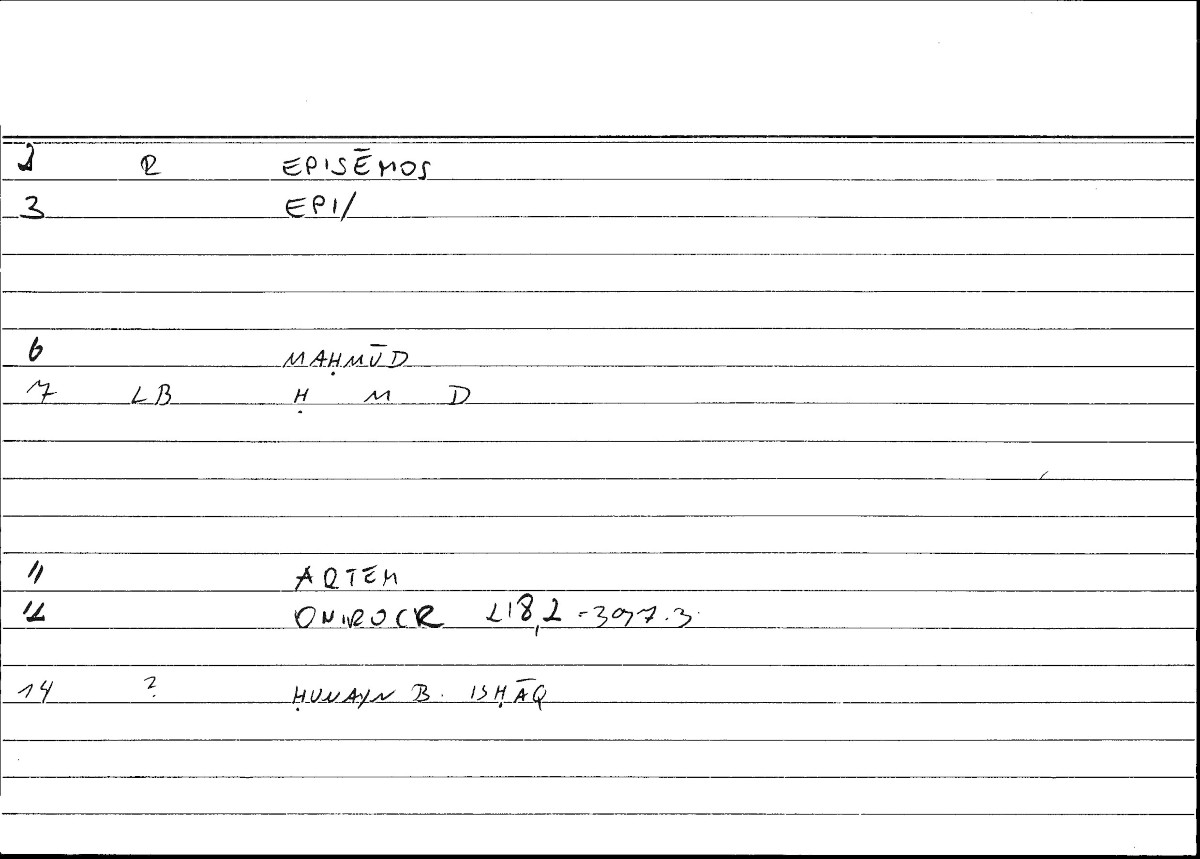 2 R EPISĒMOS
3 EPI/
6 MAḤMŪD
7 LB Ḥ M D
11 ARTEM
12 ONIROCR 218,2
14 ? ḤUNAYN B. ISḤĀQ